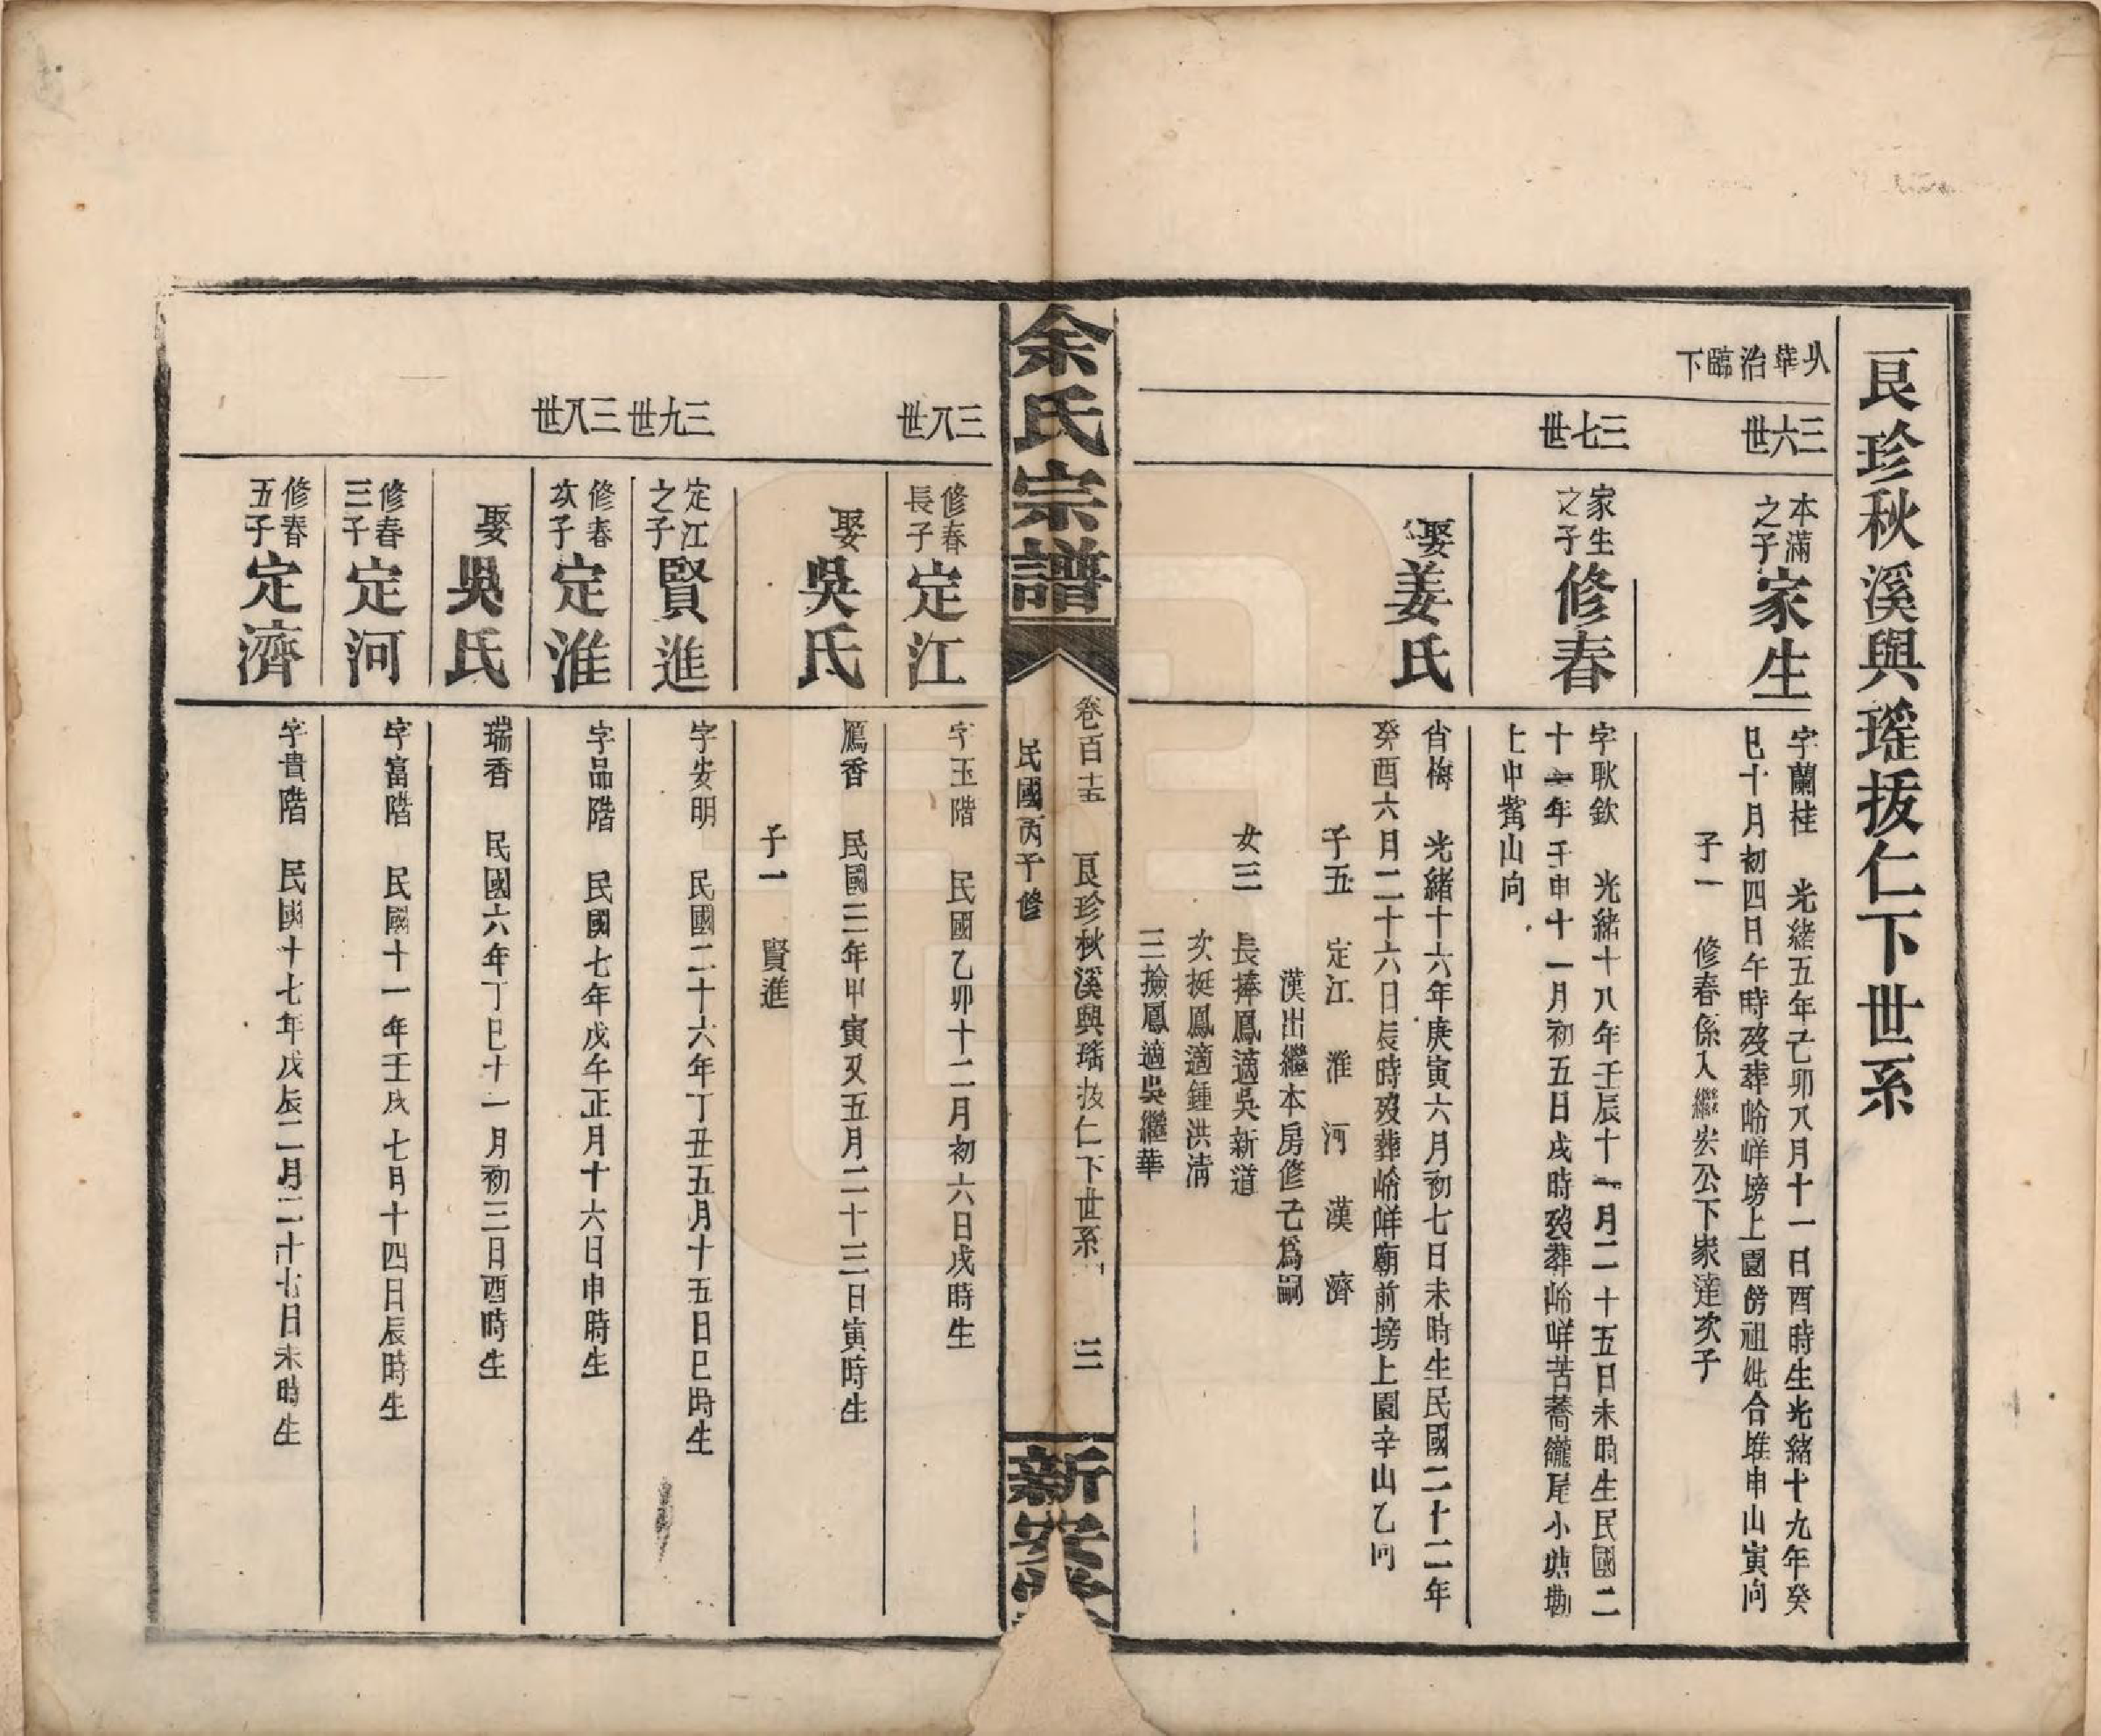 艮珍秋溪與瑤拔仁下世系
从華治臨下
三六世
本滿之子 家生
字蘭桂 光緒五年己卯八月十一日酉時生光緒十九年癸
巳十月初四日午時歿葬峆咩塝上園傍祖妣合堆申山寅向
子一 修春係入繼宏公下家達次子
三七世
家生之子 修春
字耿欽 光緒十八年壬辰十一月二十五日未時生民國二
十一年壬申十一月初五日戌時歿葬峆咩苦蕎籠尾小塘勘
上申觜山向
娶 姜氏
省梅 光緒十六年庚寅六月初七日未時生民國二十二年
癸酉六月二十六日辰時歿葬峆咩廟前塝上園辛山乙向
子五 定江 淮 河 漢 濟
漢出繼本房修己爲嗣
女三 長捧鳳適吳新道
次挺鳳適鍾洪清
三撿鳳適吳繼華
余氏宗譜
卷百十五 艮珍秋溪與瑤拔仁下世系 三
民國丙子修
新安
三八世
修春長子 定江
字玉階 民國乙卯十二月初六日戌時生
娶 吳氏
鳫香 民國三年甲寅又五月二十三日寅時生
子一 賢進
三九世
定江之子 賢進
字安明 民國二十六年丁丑五月十五日巳時生
三八世
修春次子 定淮
字品階 民國七年戊午正月十六日申時生
娶 吳氏
瑞香 民國六年丁巳十一月初三日酉時生
修春三子 定河
字富階 民國十一年壬戌七月十四日辰時生
修春五子 定濟
字貴階 民國十七年戊辰二月二十七日未時生